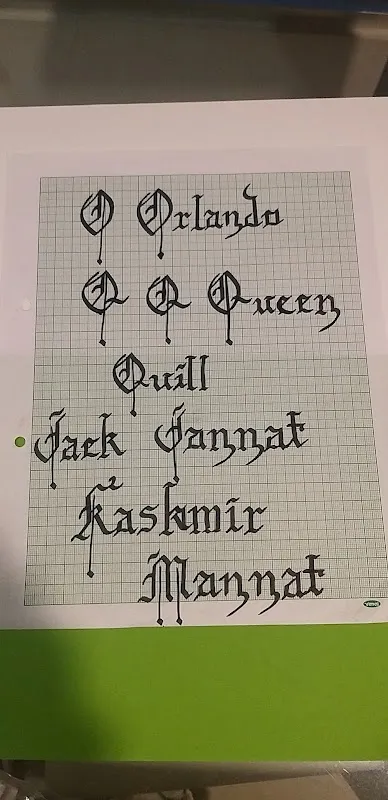 O Orlando
Q Q Queen
Quill
Jack Jannat
Kashmir
Mannat